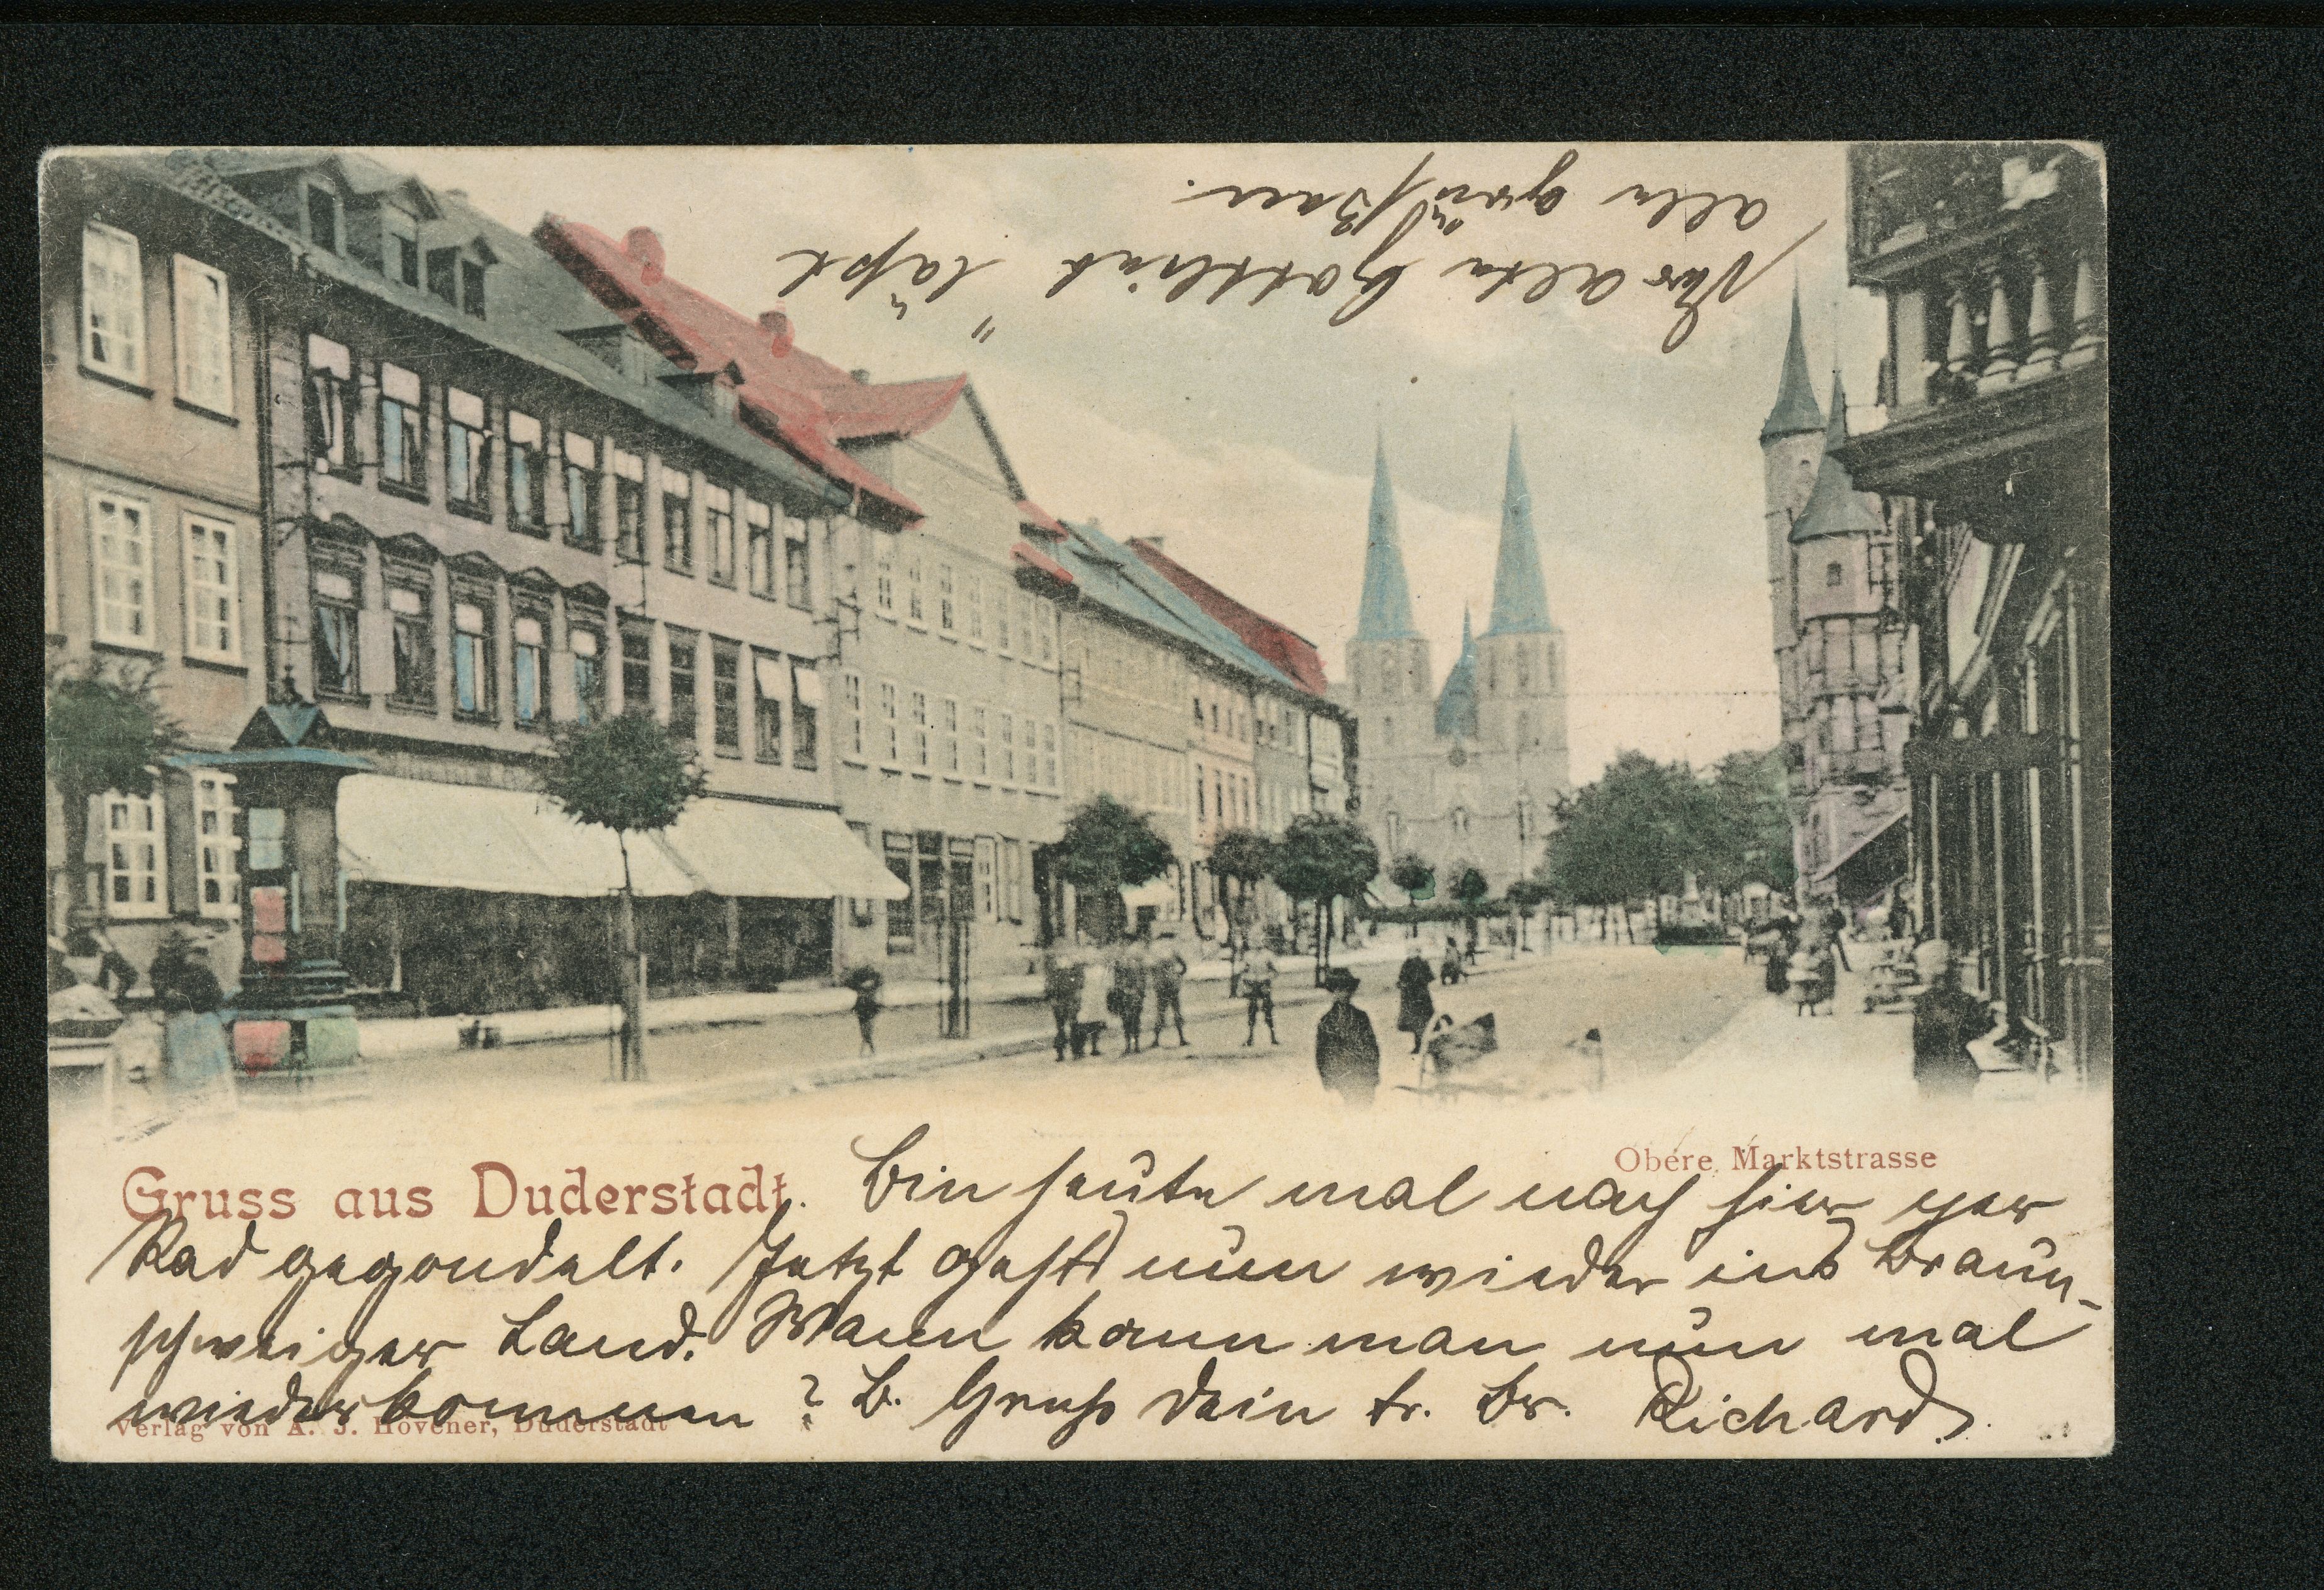 Der alte Gottlieb läßt
alle grüßen.
Obere Marktstrasse
Gruss aus Duderstadt.
Bin heute mal nach hier per
Rad gegondelt. Jetzt gehts nun wieder ins Braun-
schweiger Land. Wann kann man nun mal
wiederkommen? B. Gruß Dein tr. Br. Richard.
Verlag von A. J. Hövener, Duderstadt